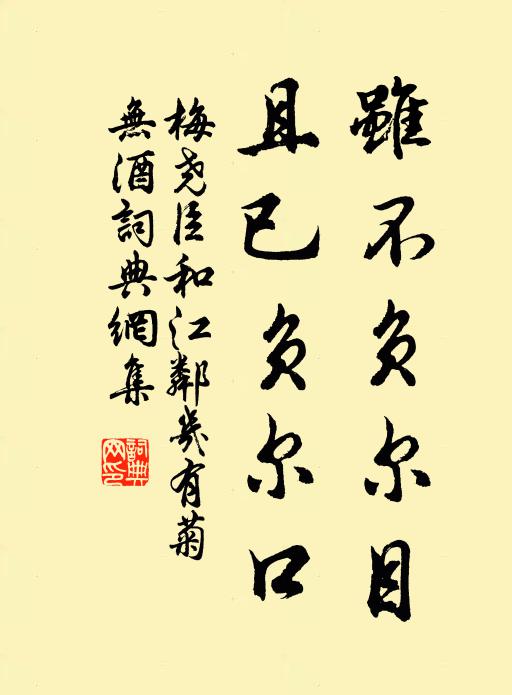 雖不负尔目
且已负尔口
梅尧臣和江鄰幾有菊
無酒詞典網集
詞典網印